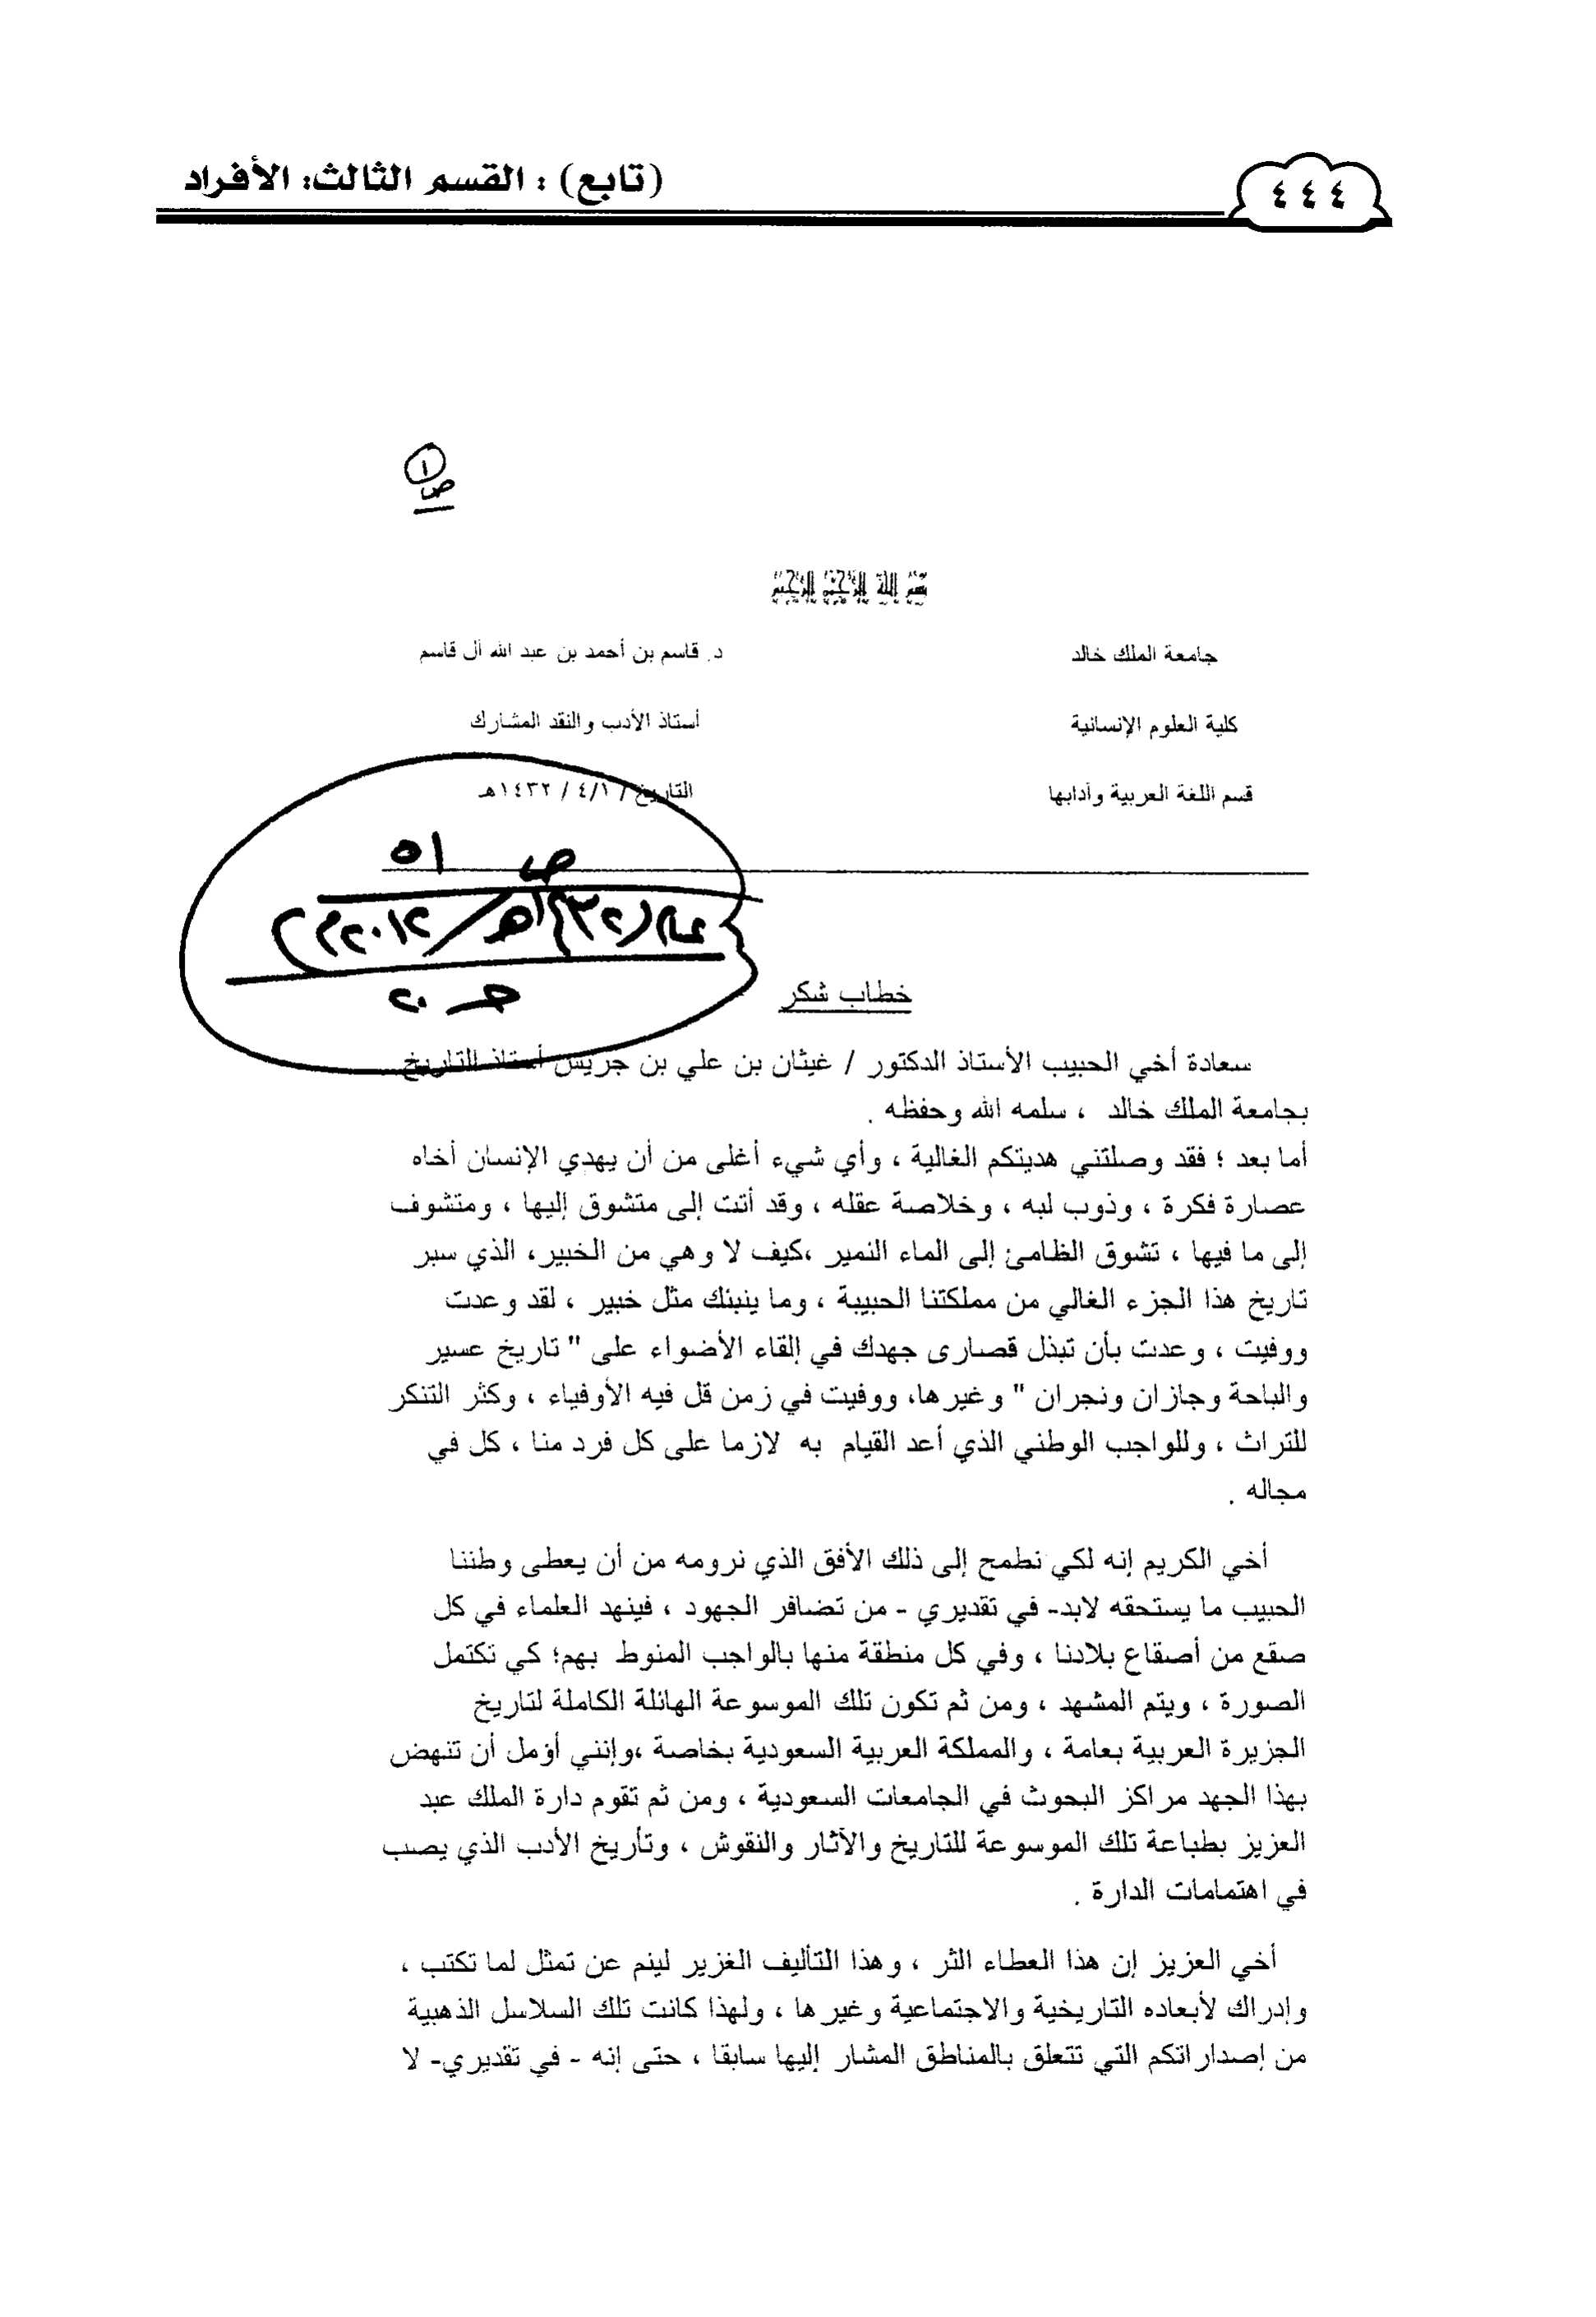 ٤٤٤
(تابع) : القسم الثالث: الأفراد
١
ص
بسم الله الرحمن الرحيم
جامعة الملك خالد
د. قاسم بن أحمد بن عبد الله آل قاسم
كلية العلوم الإنسانية
أستاذ الأدب والنقد المشارك
قسم اللغة العربية وآدابها
التاريخ / ٤/١ / ١٤٣٢هـ
ص ٥١
عام (١٤٣٢هـ/٢٠١٢م)
حـ ٢٠
خطاب شكر
سعادة أخي الحبيب الأستاذ الدكتور / غيثان بن علي بن جريس أستاذ التاريخ
بجامعة الملك خالد ، سلمه الله وحفظه .
أما بعد ؛ فقد وصلتني هديتكم الغالية ، وأي شيء أغلى من أن يهدي الإنسان أخاه
عصارة فكرة ، وذوب لبه ، وخلاصة عقله ، وقد أتت إلى متشوق إليها ، ومتشوف
إلى ما فيها ، تشوق الظامئ إلى الماء النمير ،كيف لا وهي من الخبير، الذي سبر
تاريخ هذا الجزء الغالي من مملكتنا الحبيبة ، وما ينبئك مثل خبير ، لقد وعدت
ووفيت ، وعدت بأن تبذل قصارى جهدك في إلقاء الأضواء على " تاريخ عسير
والباحة وجازان ونجران " وغيرها، ووفيت في زمن قل فيه الأوفياء ، وكثر التنكر
للتراث ، وللواجب الوطني الذي أعد القيام به لازما على كل فرد منا ، كل في
مجاله .
أخي الكريم إنه لكي نطمح إلى ذلك الأفق الذي نرومه من أن يعطى وطننا
الحبيب ما يستحقه لابد- في تقديري - من تضافر الجهود ، فينهد العلماء في كل
صقع من أصقاع بلادنا ، وفي كل منطقة منها بالواجب المنوط بهم؛ كي تكتمل
الصورة ، ويتم المشهد ، ومن ثم تكون تلك الموسوعة الهائلة الكاملة لتاريخ
الجزيرة العربية بعامة ، والمملكة العربية السعودية بخاصة ،وإنني أؤمل أن تنهض
بهذا الجهد مراكز البحوث في الجامعات السعودية ، ومن ثم تقوم دارة الملك عبد
العزيز بطباعة تلك الموسوعة للتاريخ والآثار والنقوش ، وتأريخ الأدب الذي يصب
في اهتمامات الدارة .
أخي العزيز إن هذا العطاء الثر ، وهذا التأليف الغزير لينم عن تمثل لما تكتب ،
وإدراك لأبعاده التاريخية والاجتماعية وغيرها ، ولهذا كانت تلك السلاسل الذهبية
من إصداراتكم التي تتعلق بالمناطق المشار إليها سابقا ، حتى إنه - في تقديري- لا